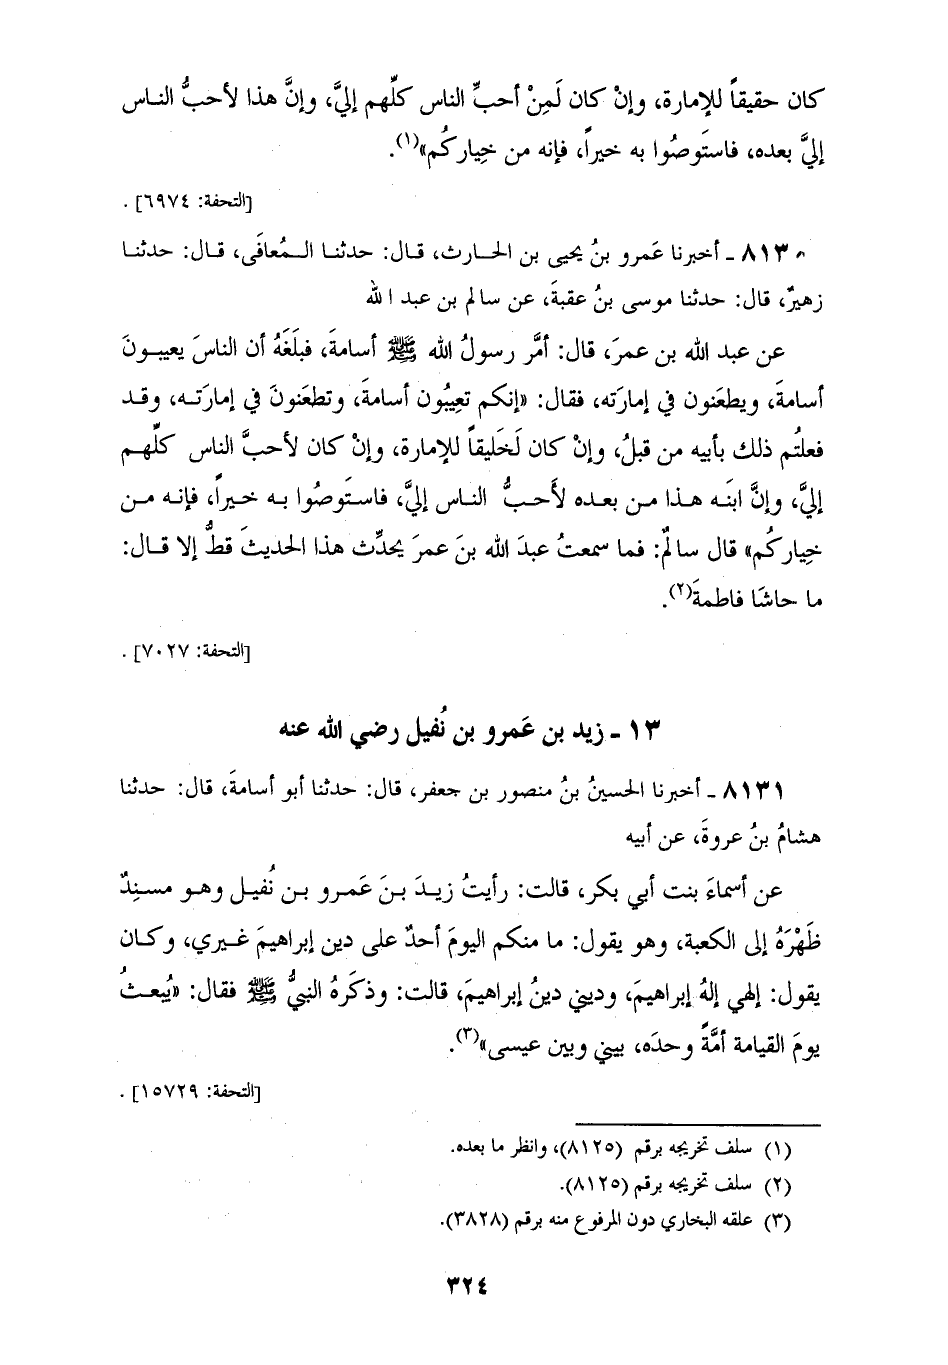 كان حقيقاً للإمارة، وإنْ كان لَمِنْ أحبِّ الناس كلِّهم إليَّ، وإنَّ هذا لأحبُّ الناس
إليَّ بعده، فاستَوصُوا به خيراً، فإنه من خِيارِكُم»(١).
[التحفة: ٦٩٧٤] .
٨١٣٠ ـ أخبرنا عَمرو بنُ يحيى بن الحـارث، قـال: حدثنـا الـمُعافَى، قـال: حدثنـا
زهيرٌ، قال: حدثنا موسى بنُ عقبةَ، عن سالم بن عبد الله
عن عبد الله بن عمرَ، قال: أمَّر رسولُ الله ﷺ أسامةَ، فبلَغَهُ أن الناسَ يعيبـونَ
أسامةَ، ويطعَنون في إمارَته، فقال: «إنكم تعِيبُون أسامةَ، وتطعَنونَ في إمارَتـه، وقـد
فعلتُم ذلك بأبيه من قبلُ، وإنْ كان لَخَليقاً للإمارة، وإنْ كان لأحبَّ الناس كلِّهـم
إليَّ، وإنَّ ابنَـه هـذا مـن بعـده لأَحـبُّ الناس إليَّ، فاستَوصُوا بـه خيراً، فإنـه مـن
خِيارِكُم» قال سالمٌ: فما سمعتُ عبدَ الله بنَ عمرَ يحدِّث هذا الحديثَ قطُّ إلا قـال:
ما حاشَا فاطمةَ(٢).
[التحفة: ٧٠٢٧] .
١٣ ـ زيد بن عَمرو بن نُفيل رضي الله عنه
٨١٣١ ـ أخبرنا الحسينُ بنُ منصور بن جعفر، قال: حدثنا أبو أسامةَ، قال: حدثنا
هشامُ بنُ عروةَ، عن أبيه
عن أسماءَ بنت أبي بكر، قالت: رأيتُ زيـدَ بـنَ عَمـرو بـن نُفيـل وهـو مسـنِدٌ
ظَهْرَهُ إلى الكعبة، وهو يقول: ما منكم اليومَ أحدٌ على دين إبراهيمَ غـيري، وكـان
يقول: إلهي إلهُ إبراهيمَ، وديني دينُ إبراهيمَ، قالت: وذكَرهُ النبيُّ ﷺ فقال: «يُبعـثُ
يومَ القيامة أمَّةً وحدَه، بيني وبين عيسى»(٣).
[التحفة: ١٥٧٢٩] .
(١) سلف تخريجه برقم (٨١٢٥)، وانظر ما بعده.
(٢) سلف تخريجه برقم (٨١٢٥).
(٣) علقه البخاري دون المرفوع منه برقم (٣٨٢٨).
٣٢٤